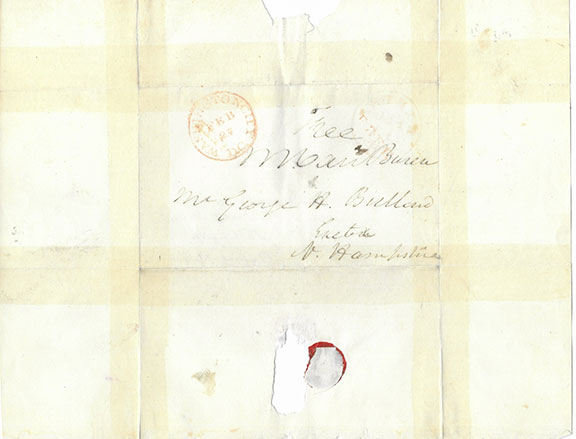 WASHINGTON CITY D.C.
FEB
Free
M Van Buren
Mr George H. Bullard
Exeter
N. Hampshire